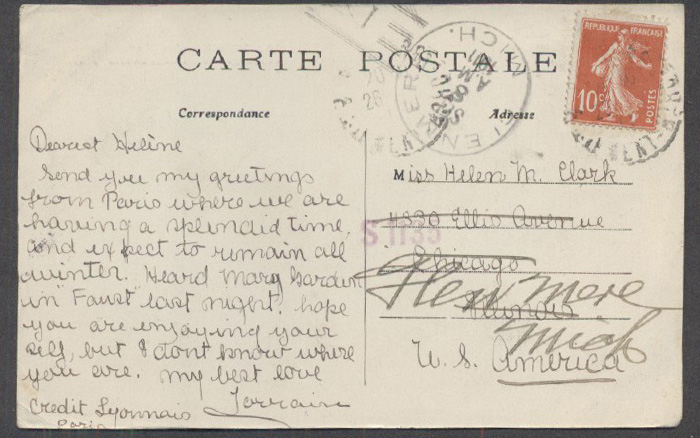 CARTE POSTALE
Correspondance
Adresse
REPUBLIQUE FRANÇAISE
10 c
POSTES
MICH.
AM
Dearest Helène
Send you my greetings
from Paris where we are
having a splendid time,
and expect to remain all
winter. Heard Mary Garden
in Faust last night. hope
you are enjoying your
self, but I dont know where
you are. my best love
Lorraine
Credit Lyonnais
Paris
Miss Helen M. Clark
4330 Ellis Avenue
S 1133
Chicago
Glen mere
Illinois
Mich
U.S. America